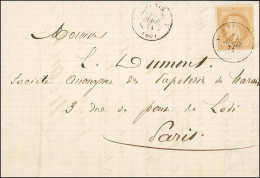 Monsieur
L. Dumont.
Société Anonyme des Papeteries du Marais
3 rue du pont de Lodi
Paris.